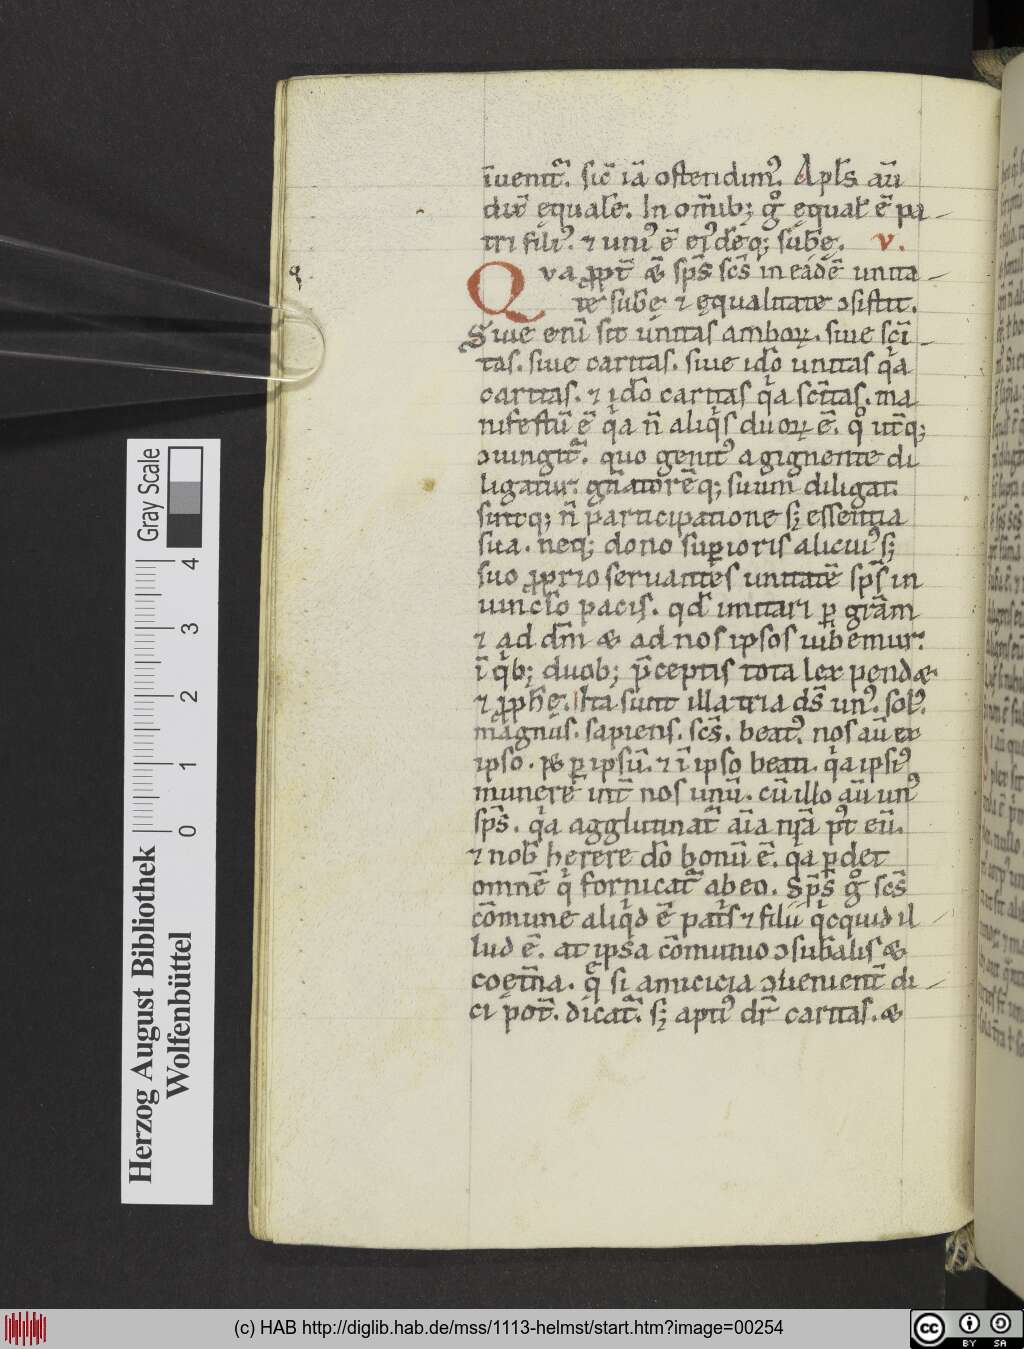 īuenit᷑. sic̄ iā ꝯstendimꝰ. Apl̄s aū
dix̄ ęqual̄e. In om̄ib; gͦ ęqual̄ ē pa
tri filiꝰ. ⁊ unꝰ ē eiꝰdēq; sub̄ę. v.
Qva ꝓpt̄ & sp̄s sc̄s in eādē unita
te sub̄ę ⁊ ęqualitate ꝯsistit.
Siue eni̅ sit unitas amboꝝ. siue sc̄i
tas. siue caritas. siue id̄o unitas qͥa
caritas. ⁊ id̄o caritas qͥa sc̄itas. ma
nifestū ē qͥa n̄ aliqͥs duoꝝ ē. qͦ ut̄q;
ꝯiungit᷑. quo genitꝰ a gignente di
ligatur. gn̄atorēq; suum̄ diligat.
sintq; n̄ participatione s; essentia
sua. neq; dono suꝑioris alicuiꝰ s;
suo ꝓprio seruantes unitatē sp̄s in
uincl̄o pacis. qd̄ imitari ꝑ grām
⁊ ad dm̄ & ad nos ipsos iubemur.
ī qͥb; duob; p̄ceptis tota lex pend&
⁊ ꝓph̄ę. Ita sunt illa tria ds̄ unꝰ. solꝰ.
magnus. sapiens. sc̄s. beatꝰ. nos aū ex
ipso. & ꝑ ipsū. ⁊ ī ipso beati. qͥa ipsiꝰ
munere int̄ nos unū. cū illo aū unꝰ
sp̄s. qͥa agglutinat᷑ aīa nr̄a pꝰt eū.
⁊ nob̄ herere dō bonū ē. qͥa ꝑdet
omnē qͥ fornicat᷑ ab eo. Sp̄s gͦ sc̄s
cōmune aliqͥd ē pat̄s ⁊ filii qͥcquid il
lud ē. at ipsa cōmunio ꝯsub̄alis &
coet̄na. q̨ͣ si amicicia ꝯuenient̄ di
ci pot̄. dicat᷑. s; aptiꝰ dr̄ caritas. &
Gray Scale
0 1 2 3 4
Herzog August Bibliothek
Wolfenbüttel
(c) HAB http://diglib.hab.de/mss/1113-helmst/start.htm?image=00254
cc BY SA